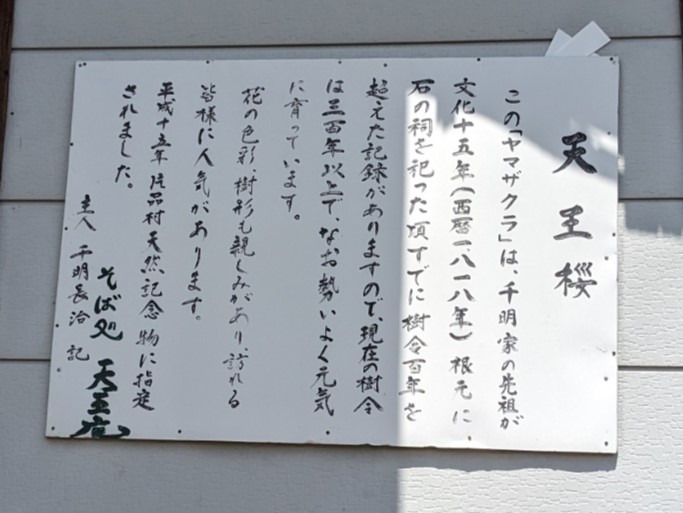 天王桜
この「ヤマザクラ」は、千明家の先祖が
文化十五年(西暦一八一八年)根元に、
石の祠を祀った頃すでに樹令百年を
超えた記録がありますので、現在の樹令
は三百年以上で、なお勢いよく元気
に育っています。
花の色彩、樹形も親しみがあり、訪れる
皆様に人気があります。
平成十五年片品村天然記念物に指定
されました。
主人 千明長治 記
そば処 天王庵